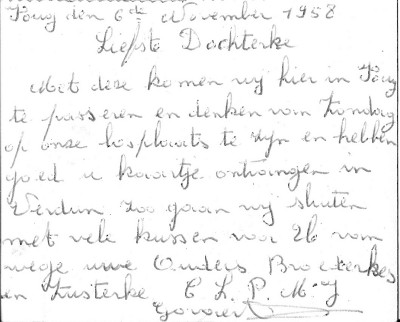 Foug den 6de November 1958
Liefste Dochterke
Met deze komen wy hier in Foug
te passeren en denken van Zondag
op onze losplaats te zyn en hebben
goed u kaartje ontvangen in
Verdun zoo gaan wij sluiten
met vele kussen voor U van
wege uwe Ouders Broederkes
en Zusterke C L P. M. J
Govaert